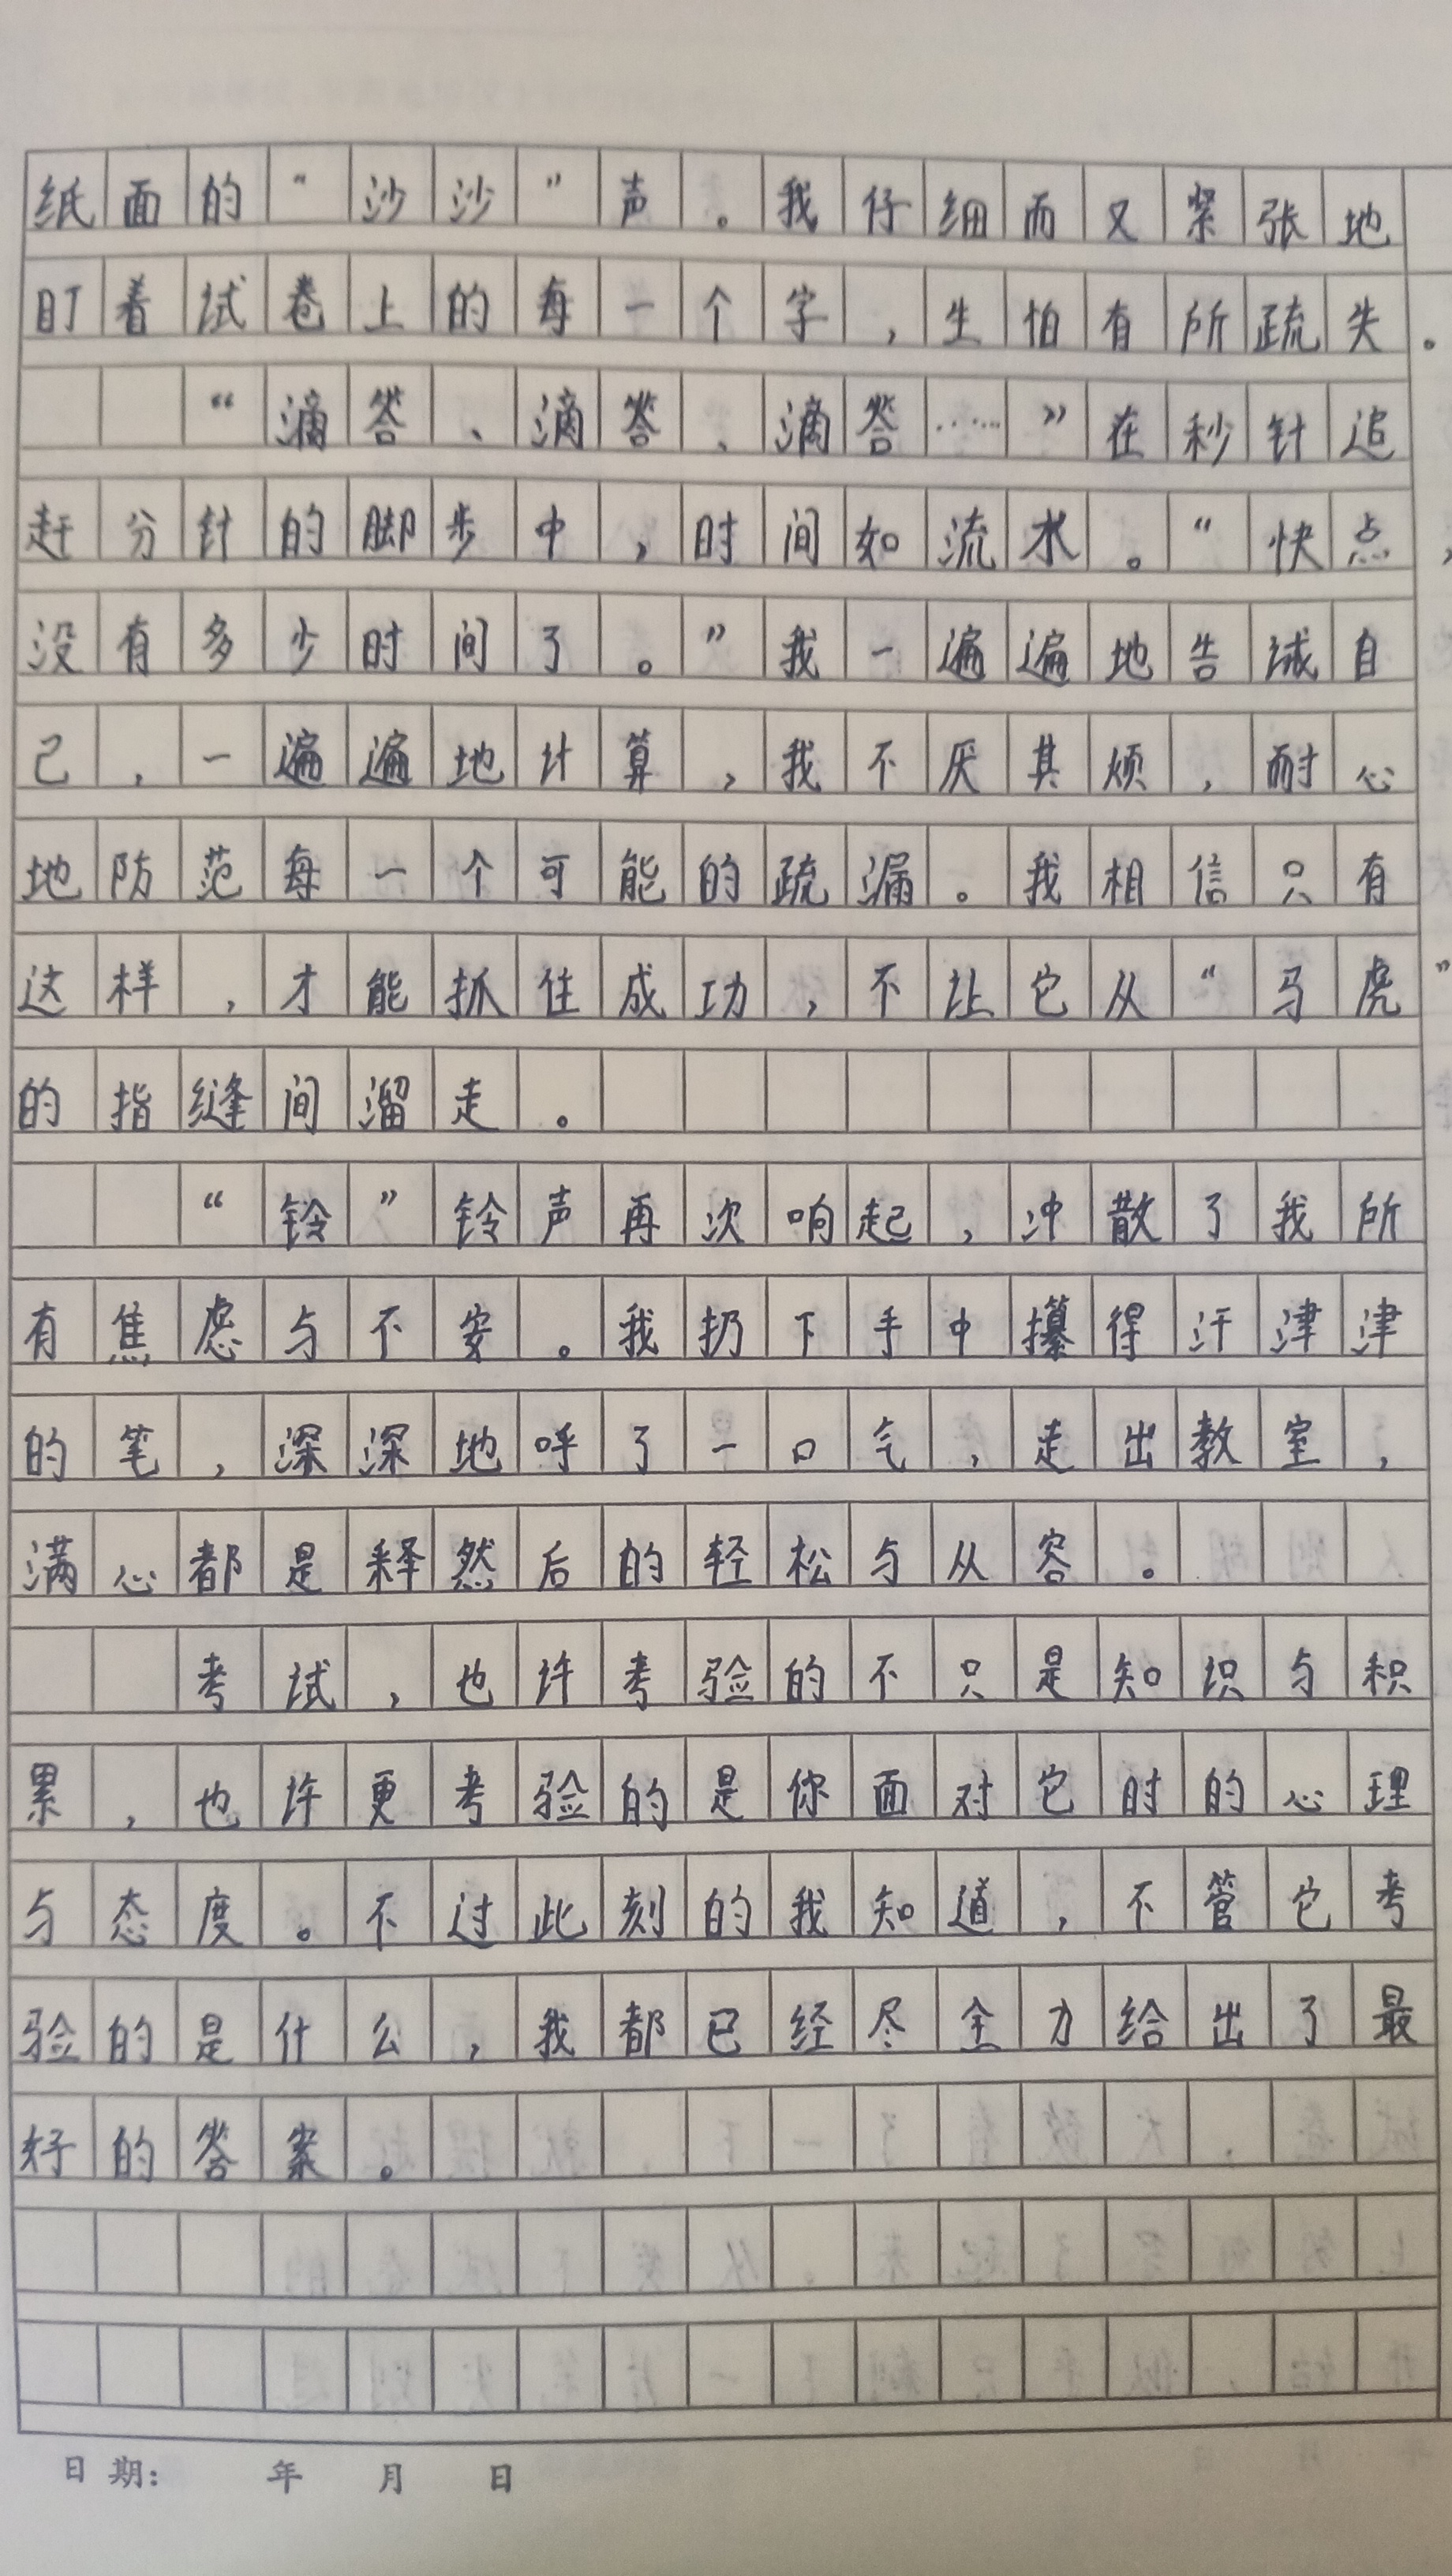 纸面的“沙沙”声。我仔细而又紧张地
盯着试卷上的每一个字,生怕有所疏失。
“滴答、滴答、滴答……”在秒针追
赶分针的脚步中,时间如流水。“快点,
没有多少时间了。”我一遍遍地告诫自
己,一遍遍地计算,我不厌其烦,耐心
地防范每一个可能的疏漏。我相信只有
这样,才能抓住成功,不让它从“马虎”
的指缝间溜走。
“铃”铃声再次响起,冲散了我所
有焦虑与不安。我扔下手中攥得汗津津
的笔,深深地呼了一口气,走出教室,
满心都是释然后的轻松与从容。
考试,也许考验的不只是知识与积
累,也许更考验的是你面对它时的心理
与态度。不过此刻的我知道,不管它考
验的是什么,我都已经尽全力给出了最
好的答案。
日期: 年 月 日